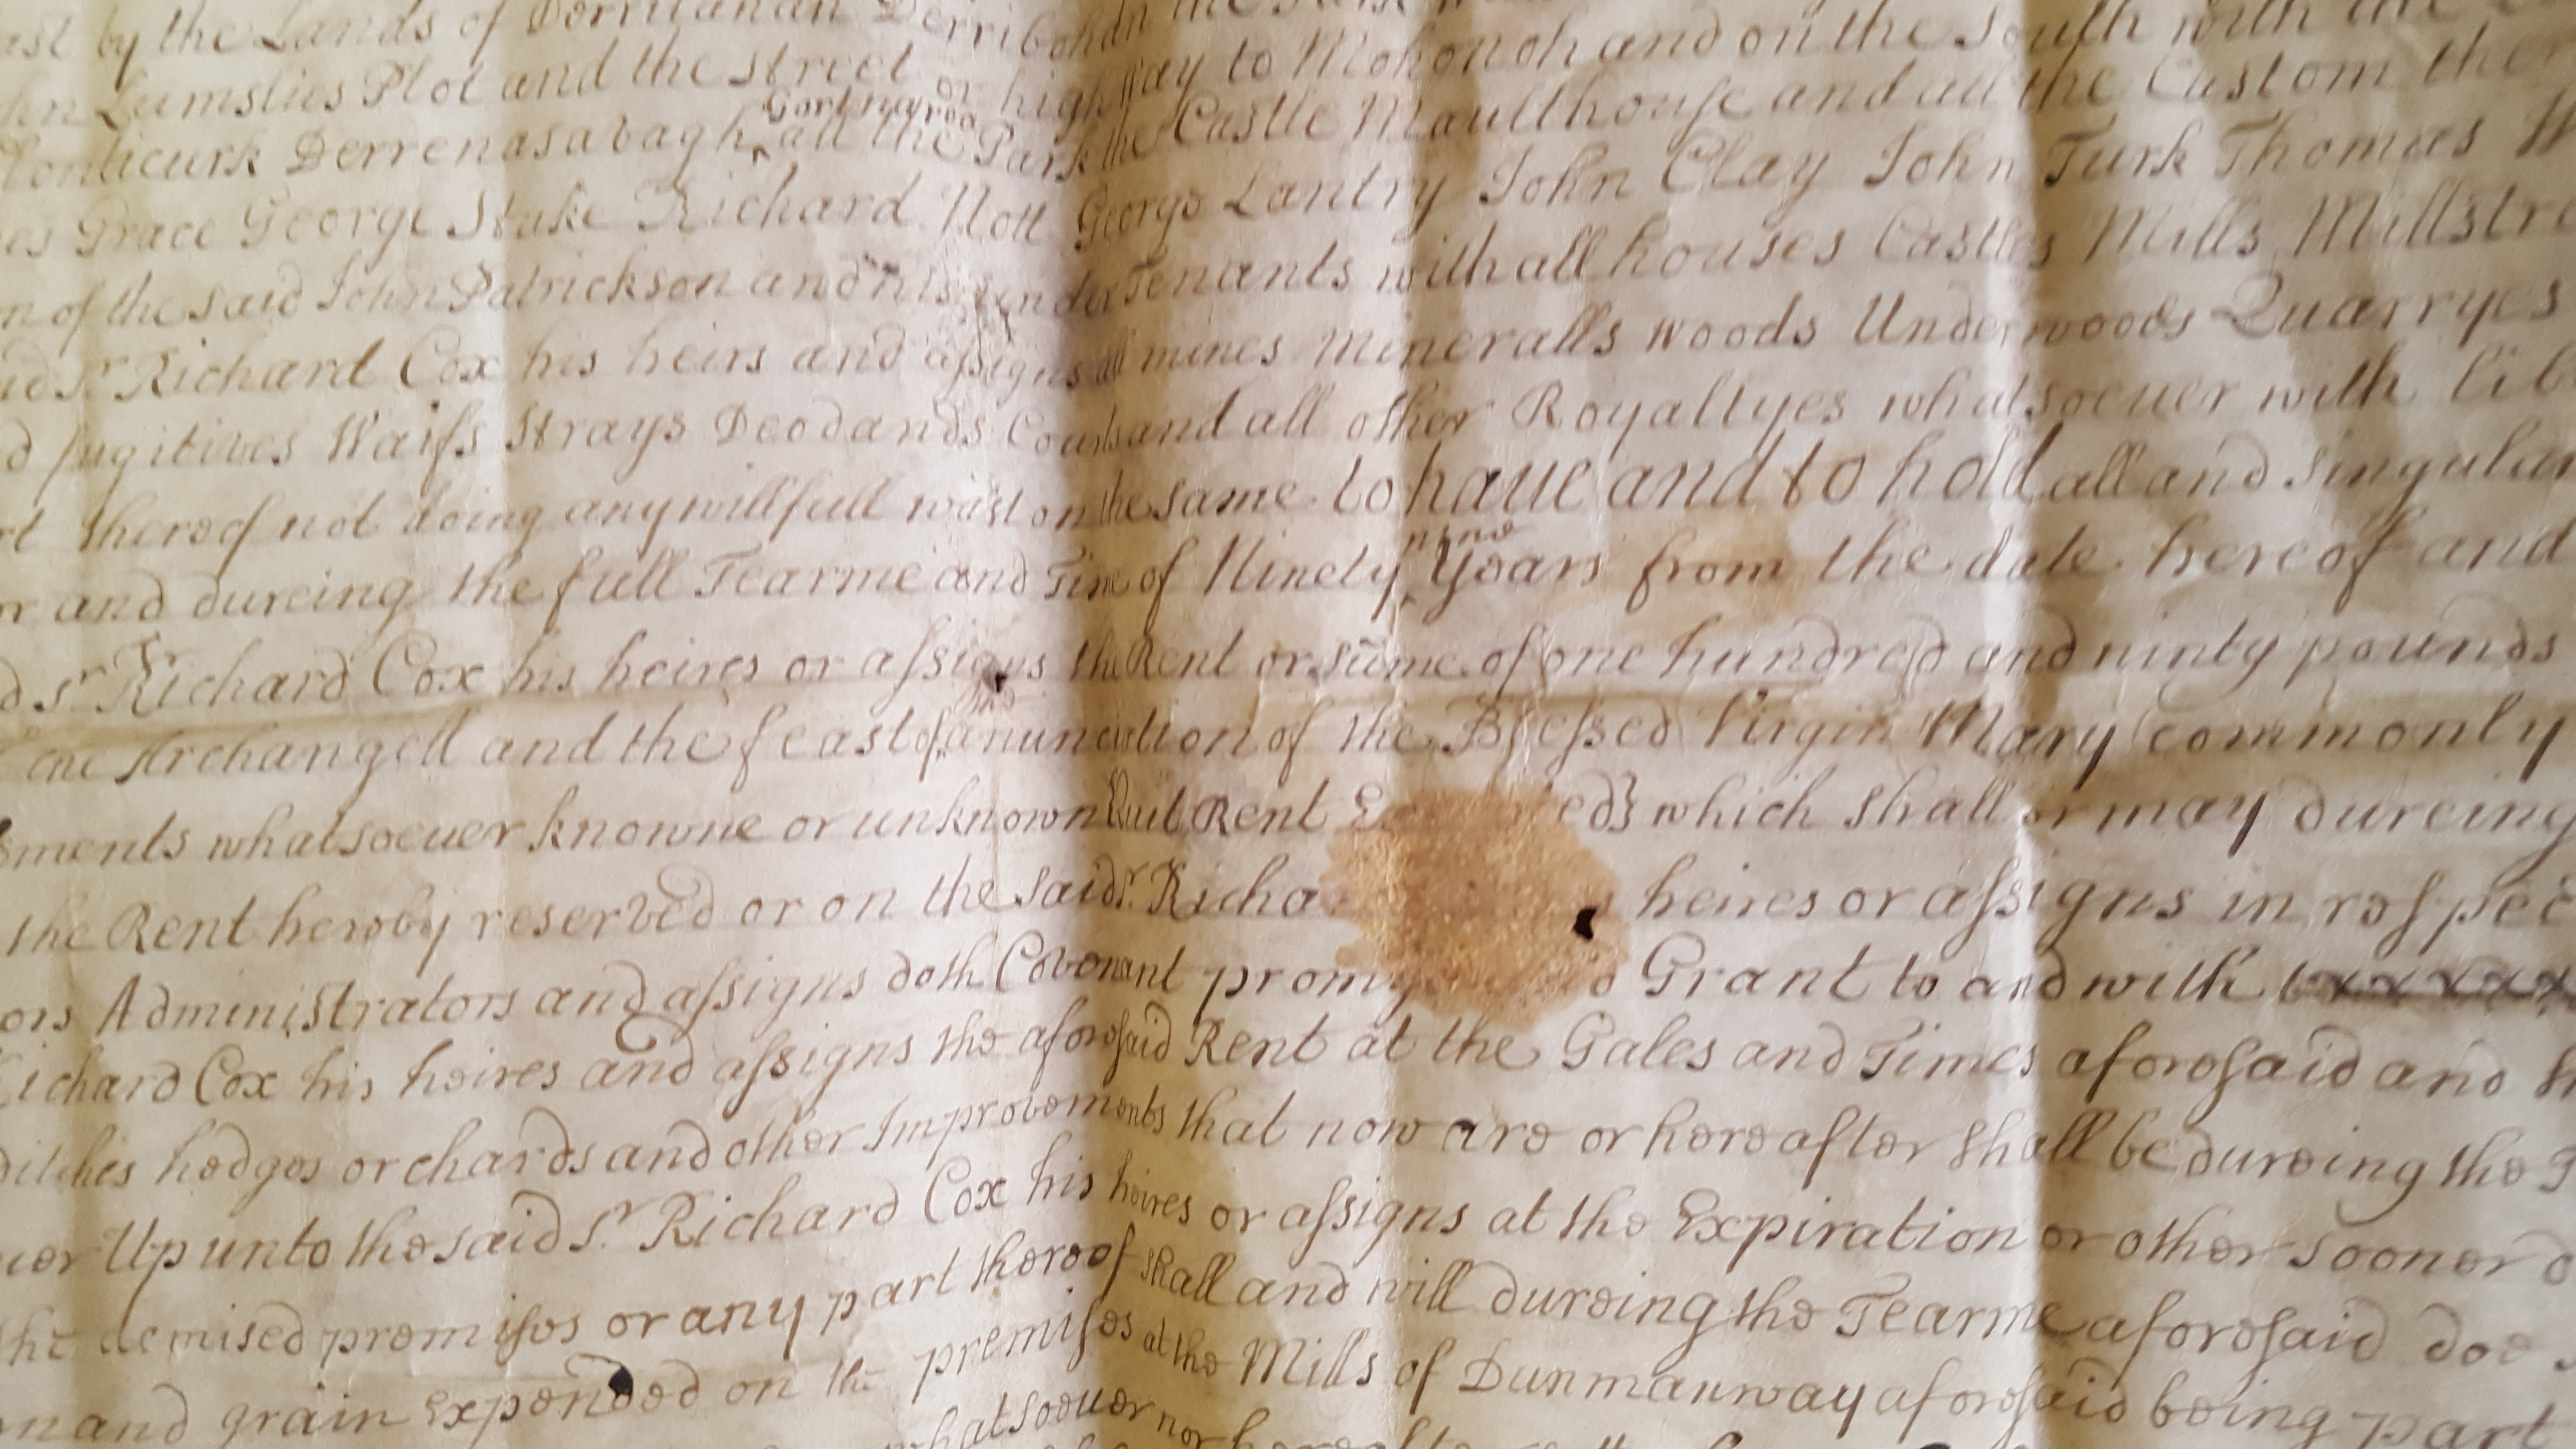 ast by the Lands of Dorrilanan Derribohdn the
Lumslies Plot and the street or high Way to Mohonoh and on the South with the
Derrenasabagh all the Park the Castle Maulthouse and all the Custom ther
Gortnyaroa
es Grace George Stuke Richard Nott George Lantry John Clay John Turk Thomas W
n of the said John Patrickson and his under Tenants with all houses Castles Mills Millstre
id Sr Richard Cox his heirs and assigns all mines Mineralls woods Underwoods Quarryes
d fugitives Waifs Strays Deodands Courts and all other Royaltyes whatsoeuer with lib
rt thereof not doing any willfull wast on the same to haue and to hold all and singular
r and dureing the full Tearme and Time of Ninety nine Years from the date hereof and
d Sr Richard Cox his heires or assigns the Rent or sume of one hundred and ninty pounds
Archangell and the feast of the anunciation of the Blessed Virgin Mary commonly
sments whatsoeuer knowne or unknown Quit Rent ed} which shall or may dureing
the Rent hereby reserved or on the said Sr Richa heires or assigns in respec
ors Administrators and assigns doth Covenant promis Grant to and with
Richard Cox his heires and assigns the aforesaid Rent at the Gales and Times aforesaid and th
ditches hedges orchards and other Improvements that now are or hereafter shall be dureing the T
uer Up unto the said Sr Richard Cox his heires or assigns at the Expiration or other sooner d
the demised premises or any part thereof shall and will dureing the Tearme aforesaid doe
n and grain Expended on the premises at the Mills of Dunmanway aforesaid being part
whatsoeuer nor